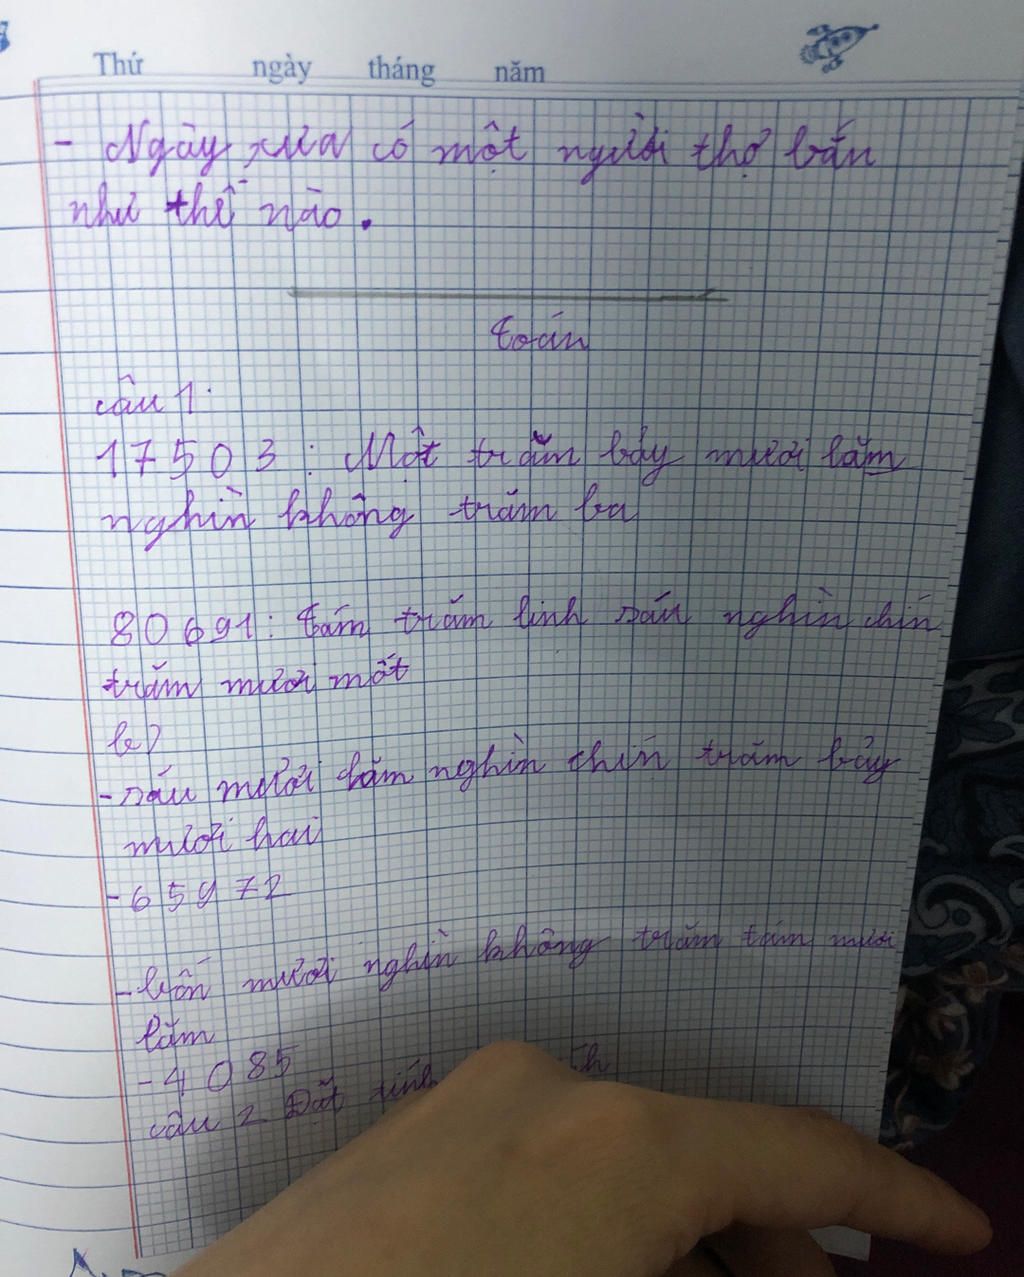 Thứ ngày tháng năm
- Ngày xưa có một người thợ bắn
như thế nào.
Toán
câu 1:
17503: Một trăm bảy mươi lăm
nghìn không trăm ba
80691: tám trăm linh sáu nghìn chín
trăm mươi mốt
b)
- sáu mươi lăm nghìn chín trăm bảy
mươi hai
- 65972
- bốn mươi nghìn không trăm tám mươi
lăm
- 4085
câu 2 Đặt tính